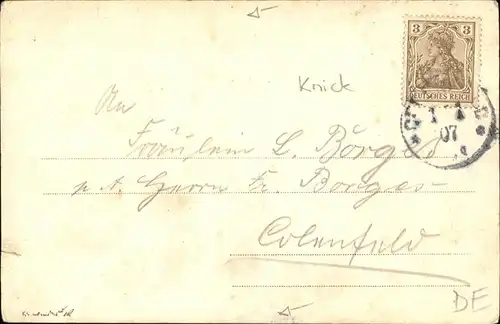 3 3
DEUTSCHES REICH
Knick
1
07
An
Fräulein L. Borges
Herrn Fr. Borges
Colenfeld
DE